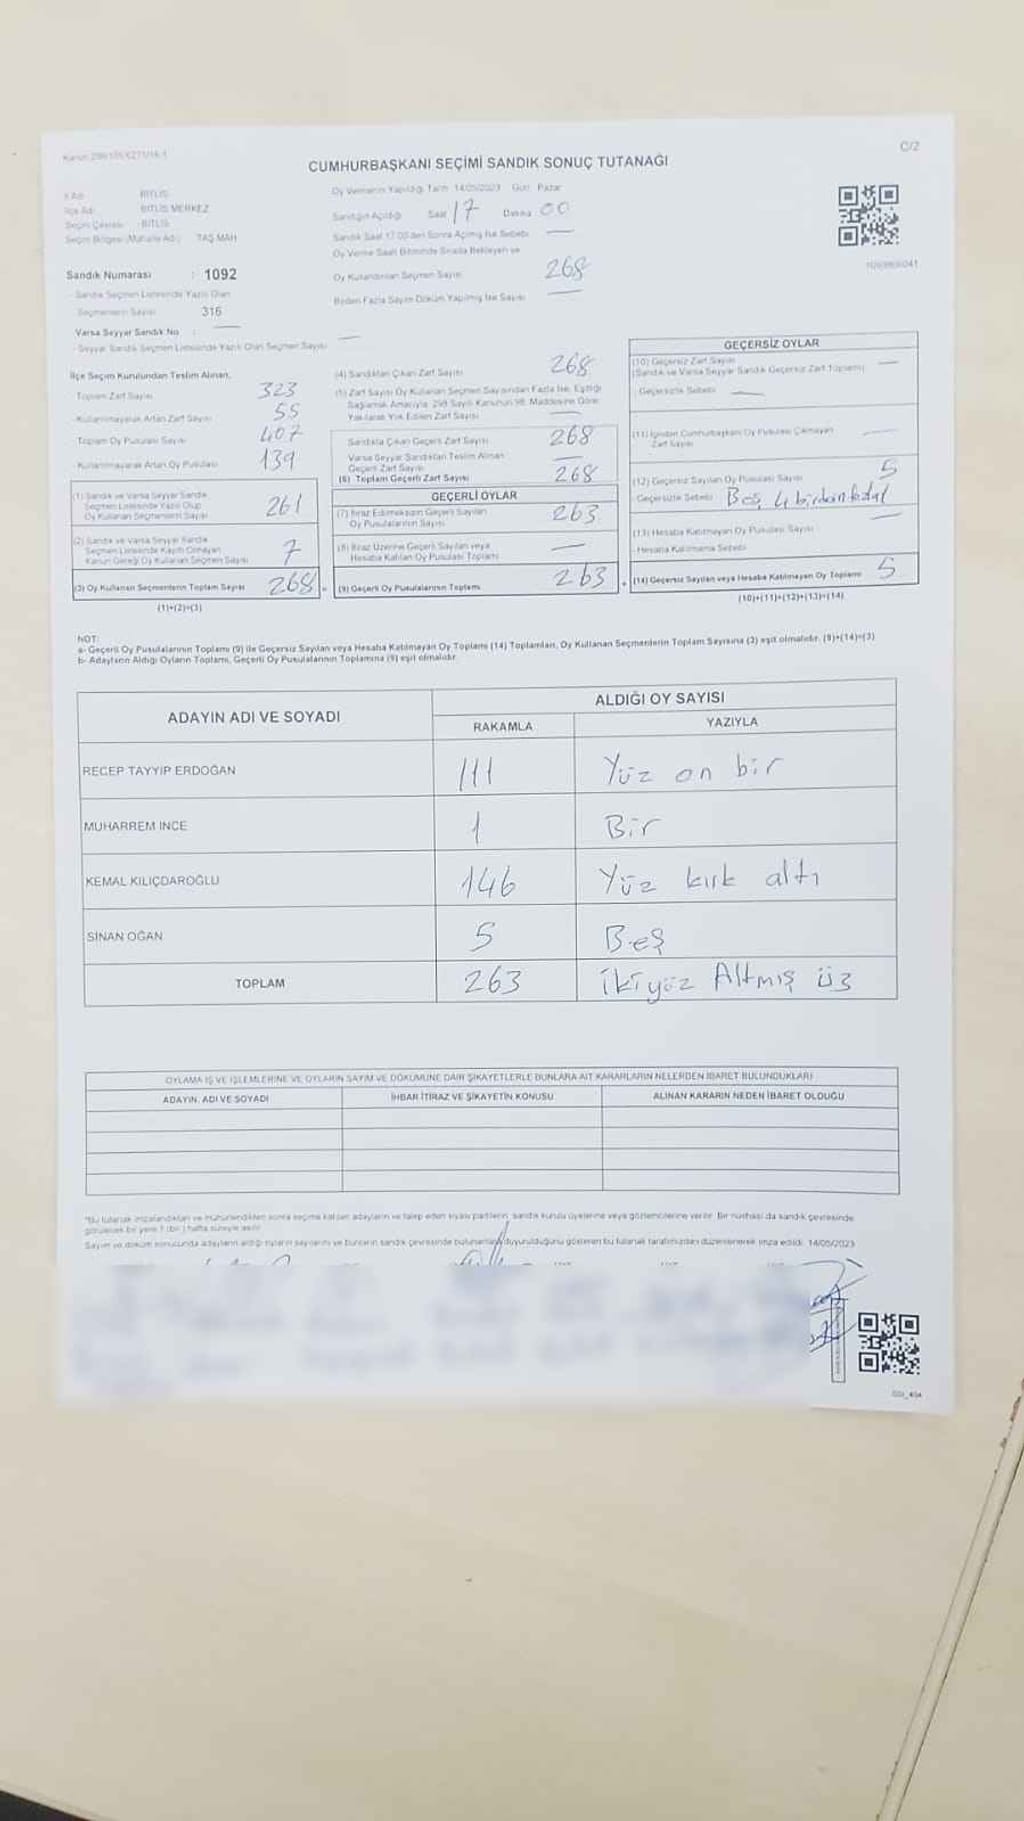 C/2
CUMHURBAŞKANI SEÇİMİ SANDIK SONUÇ TUTANAĞI
İl Adı BİTLİS
İlçe Adı BİTLİS MERKEZ
Seçim Çevresi : BİTLİS
Seçim Bölgesi (Mahalle Adı) : TAŞ MAH.
Sandık Numarası : 1092
Sandık Seçmen Listesinde Yazılı Olan
Seçmenlerin Sayısı 316
Varsa Seyyar Sandık No : —
- Seyyar Sandık Seçmen Listesinde Yazılı Olan Seçmen Sayısı —
Oy Vermenin Yapıldığı Tarih 14/05/2023 Gün: Pazar
Sandığın Açıldığı Saat 17 Dakika 00
Sandık Saat 17.00'den Sonra Açılmış İse Sebebi —
Oy Verme Saati Bitiminde Sırada Bekleyen ve
Oy Kullandırılan Seçmen Sayısı 268
Birden Fazla Sayım Döküm Yapılmış İse Sayısı —
İlçe Seçim Kurulundan Teslim Alınan;
Toplam Zarf Sayısı 323
-Kullanılmayarak Artan Zarf Sayısı 55
Toplam Oy Pusulası Sayısı 407
-Kullanılmayarak Artan Oy Pusulası 139
(1) Sandık ve Varsa Seyyar Sandık
Seçmen Listesinde Yazılı Olup
Oy Kullanan Seçmenlerin Sayısı 261
(2) Sandık ve Varsa Seyyar Sandık
Seçmen Listesinde Kayıtlı Olmayan
Kanun Gereği Oy Kullanan Seçmen Sayısı 7
(3) Oy Kullanan Seçmenlerin Toplam Sayısı 268
(1)+(2)=(3)
(4) Sandıktan Çıkan Zarf Sayısı 268
(5) Zarf Sayısı Oy Kullanan Seçmen Sayısından Fazla İse, Eşitliği
Sağlamak Amacıyla, 298 Sayılı Kanunun 98. Maddesine Göre
Yakılarak Yok Edilen Zarf Sayısı —
Sandıkta Çıkan Geçerli Zarf Sayısı 268
Varsa Seyyar Sandıktan Teslim Alınan
Geçerli Zarf Sayısı —
(6) Toplam Geçerli Zarf Sayısı 268
GEÇERLİ OYLAR
(7) İtiraz Edilmeksizin Geçerli Sayılan
Oy Pusulalarının Sayısı 263
(8) İtiraz Üzerine Geçerli Sayılan veya
Hesaba Katılan Oy Pusulası Toplamı —
(9) Geçerli Oy Pusulalarının Toplamı 263
GEÇERSİZ OYLAR
(10) Geçersiz Zarf Sayısı —
(Sandık ve Varsa Seyyar Sandık Geçersiz Zarf Toplamı)
Geçersizlik Sebebi —
(11) İçinden Cumhurbaşkanı Oy Pusulası Çıkmayan
Zarf Sayısı —
(12) Geçersiz Sayılan Oy Pusulası Sayısı 5
Geçersizlik Sebebi Beş,
(13) Hesaba Katılmayan Oy Pusulası Sayısı —
-Hesaba Katılmama Sebebi
(14) Geçersiz Sayılan veya Hesaba Katılmayan Oy Toplamı 5
(10)+(11)+(12)+(13)=(14)
NOT:
a- Geçerli Oy Pusulalarının Toplamı (9) ile Geçersiz Sayılan veya Hesaba Katılmayan Oy Toplamı (14) Toplamları, Oy Kullanan Seçmenlerin Toplam Sayısına (3) eşit olmalıdır. (9)+(14)=(3)
b- Adayların Aldığı Oyların Toplamı, Geçerli Oy Pusulalarının Toplamına (9) eşit olmalıdır.
ADAYIN ADI VE SOYADI
ALDIĞI OY SAYISI
RAKAMLA YAZIYLA
RECEP TAYYİP ERDOĞAN 111 Yüz on bir
MUHARREM İNCE 1 Bir
KEMAL KILIÇDAROĞLU 146 Yüz kırk altı
SİNAN OĞAN 5 Beş
TOPLAM 263 ikiyüz Altmış üç
OYLAMA İŞ VE İŞLEMLERİNE VE OYLARIN SAYIM VE DÖKÜMÜNE DAİR ŞİKAYETLERLE BUNLARA AİT KARARLARIN NELERDEN İBARET BULUNDUKLARI
ADAYIN, ADI VE SOYADI İHBAR İTİRAZ VE ŞİKAYETİN KONUSU ALINAN KARARIN NEDEN İBARET OLDUĞU
*Bu tutanak imzalandıktan ve mühürlendikten sonra seçime katılan adayların ve talep eden siyasi partilerin, sandık kurulu üyelerine veya gözlemcilerine verilir. Bir nüshası da sandık çevresinde
görülecek bir yere 1 (bir) hafta süreyle asılır.
Sayım ve döküm sonucunda adayların aldığı oyların sayılarını ve bunların sandık çevresinde bulunanlara duyurulduğunu gösteren bu tutanak tarafımızdan düzenlenerek imza edildi. 14/05/2023